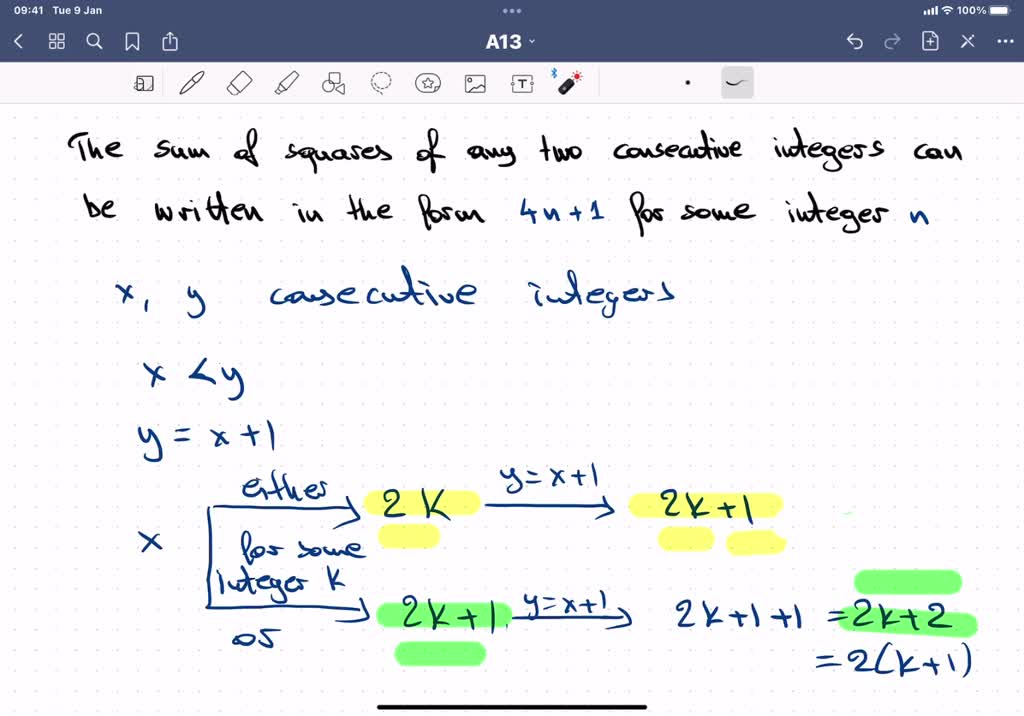 09:41 Tue 9 Jan
100%
A13
The sum of squares of any two consecutive integers can
be written in the form 4n+1 for some integer n
x, y consecutive integers
x < y
y = x+1
either 2k y=x+1 2k+1
x for some
integer k
or 2k+1 y=x+1 2k+1+1 = 2k+2
= 2(k+1)